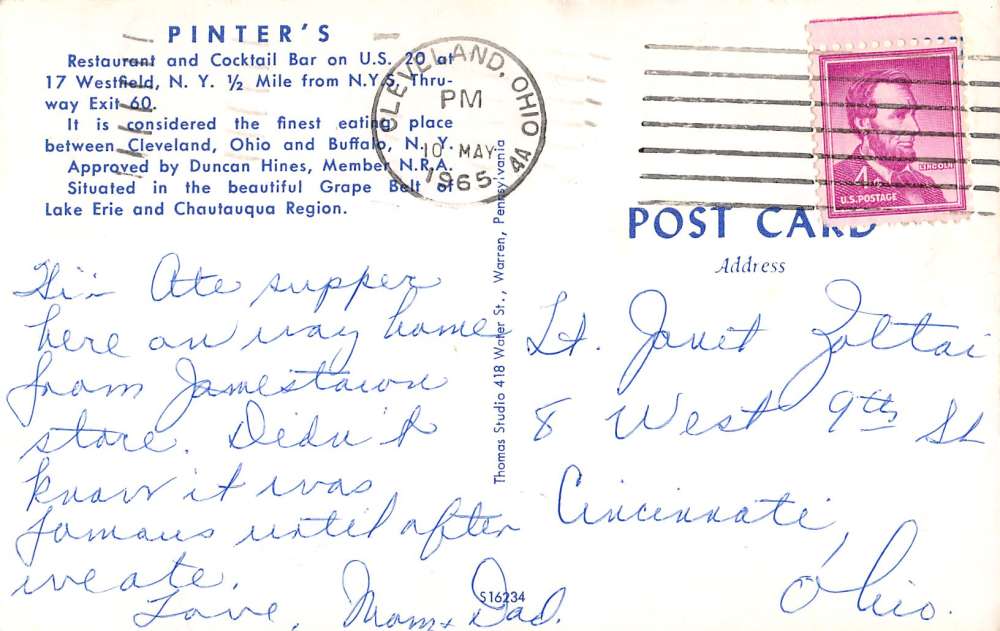 PINTER'S
Restaurant and Cocktail Bar on U.S. 20 at
17 Westfield, N. Y. ½ Mile from N.Y.S. Thru-
way Exit 60.
It is considered the finest eating place
between Cleveland, Ohio and Buffalo, N. Y.
Approved by Duncan Hines, Member N.R.A.
Situated in the beautiful Grape Belt of
Lake Erie and Chautauqua Region.
CLEVELAND, OHIO
PM
10 MAY
1965
4A
LINCOLN
4¢
U.S. POSTAGE
POST CARD
Address
Hi - Ate supper
here on way home
from Jamestown
store. Didn't
know it was
famous until after
we ate.
Love, Mom + Dad.
Thomas Studio 418 Water St., Warren, Pennsylvania
S16234
Lt. Janet Zoltai
8 West 9th St
Cincinnati,
Ohio.